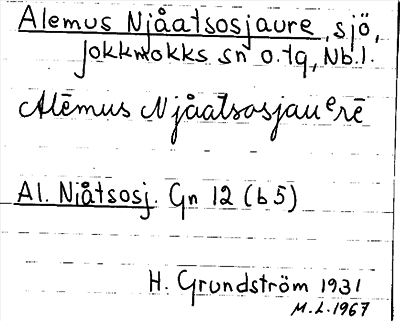 Alemus Njåatsosjaure, sjö,
Jokkmokks sn o. tg, Nb. l.
Alēmus Njåatsosjauᵉrē
Al. Njåtsosj. Gn 12 (b5)
H. Grundström 1931
M.L. 1967